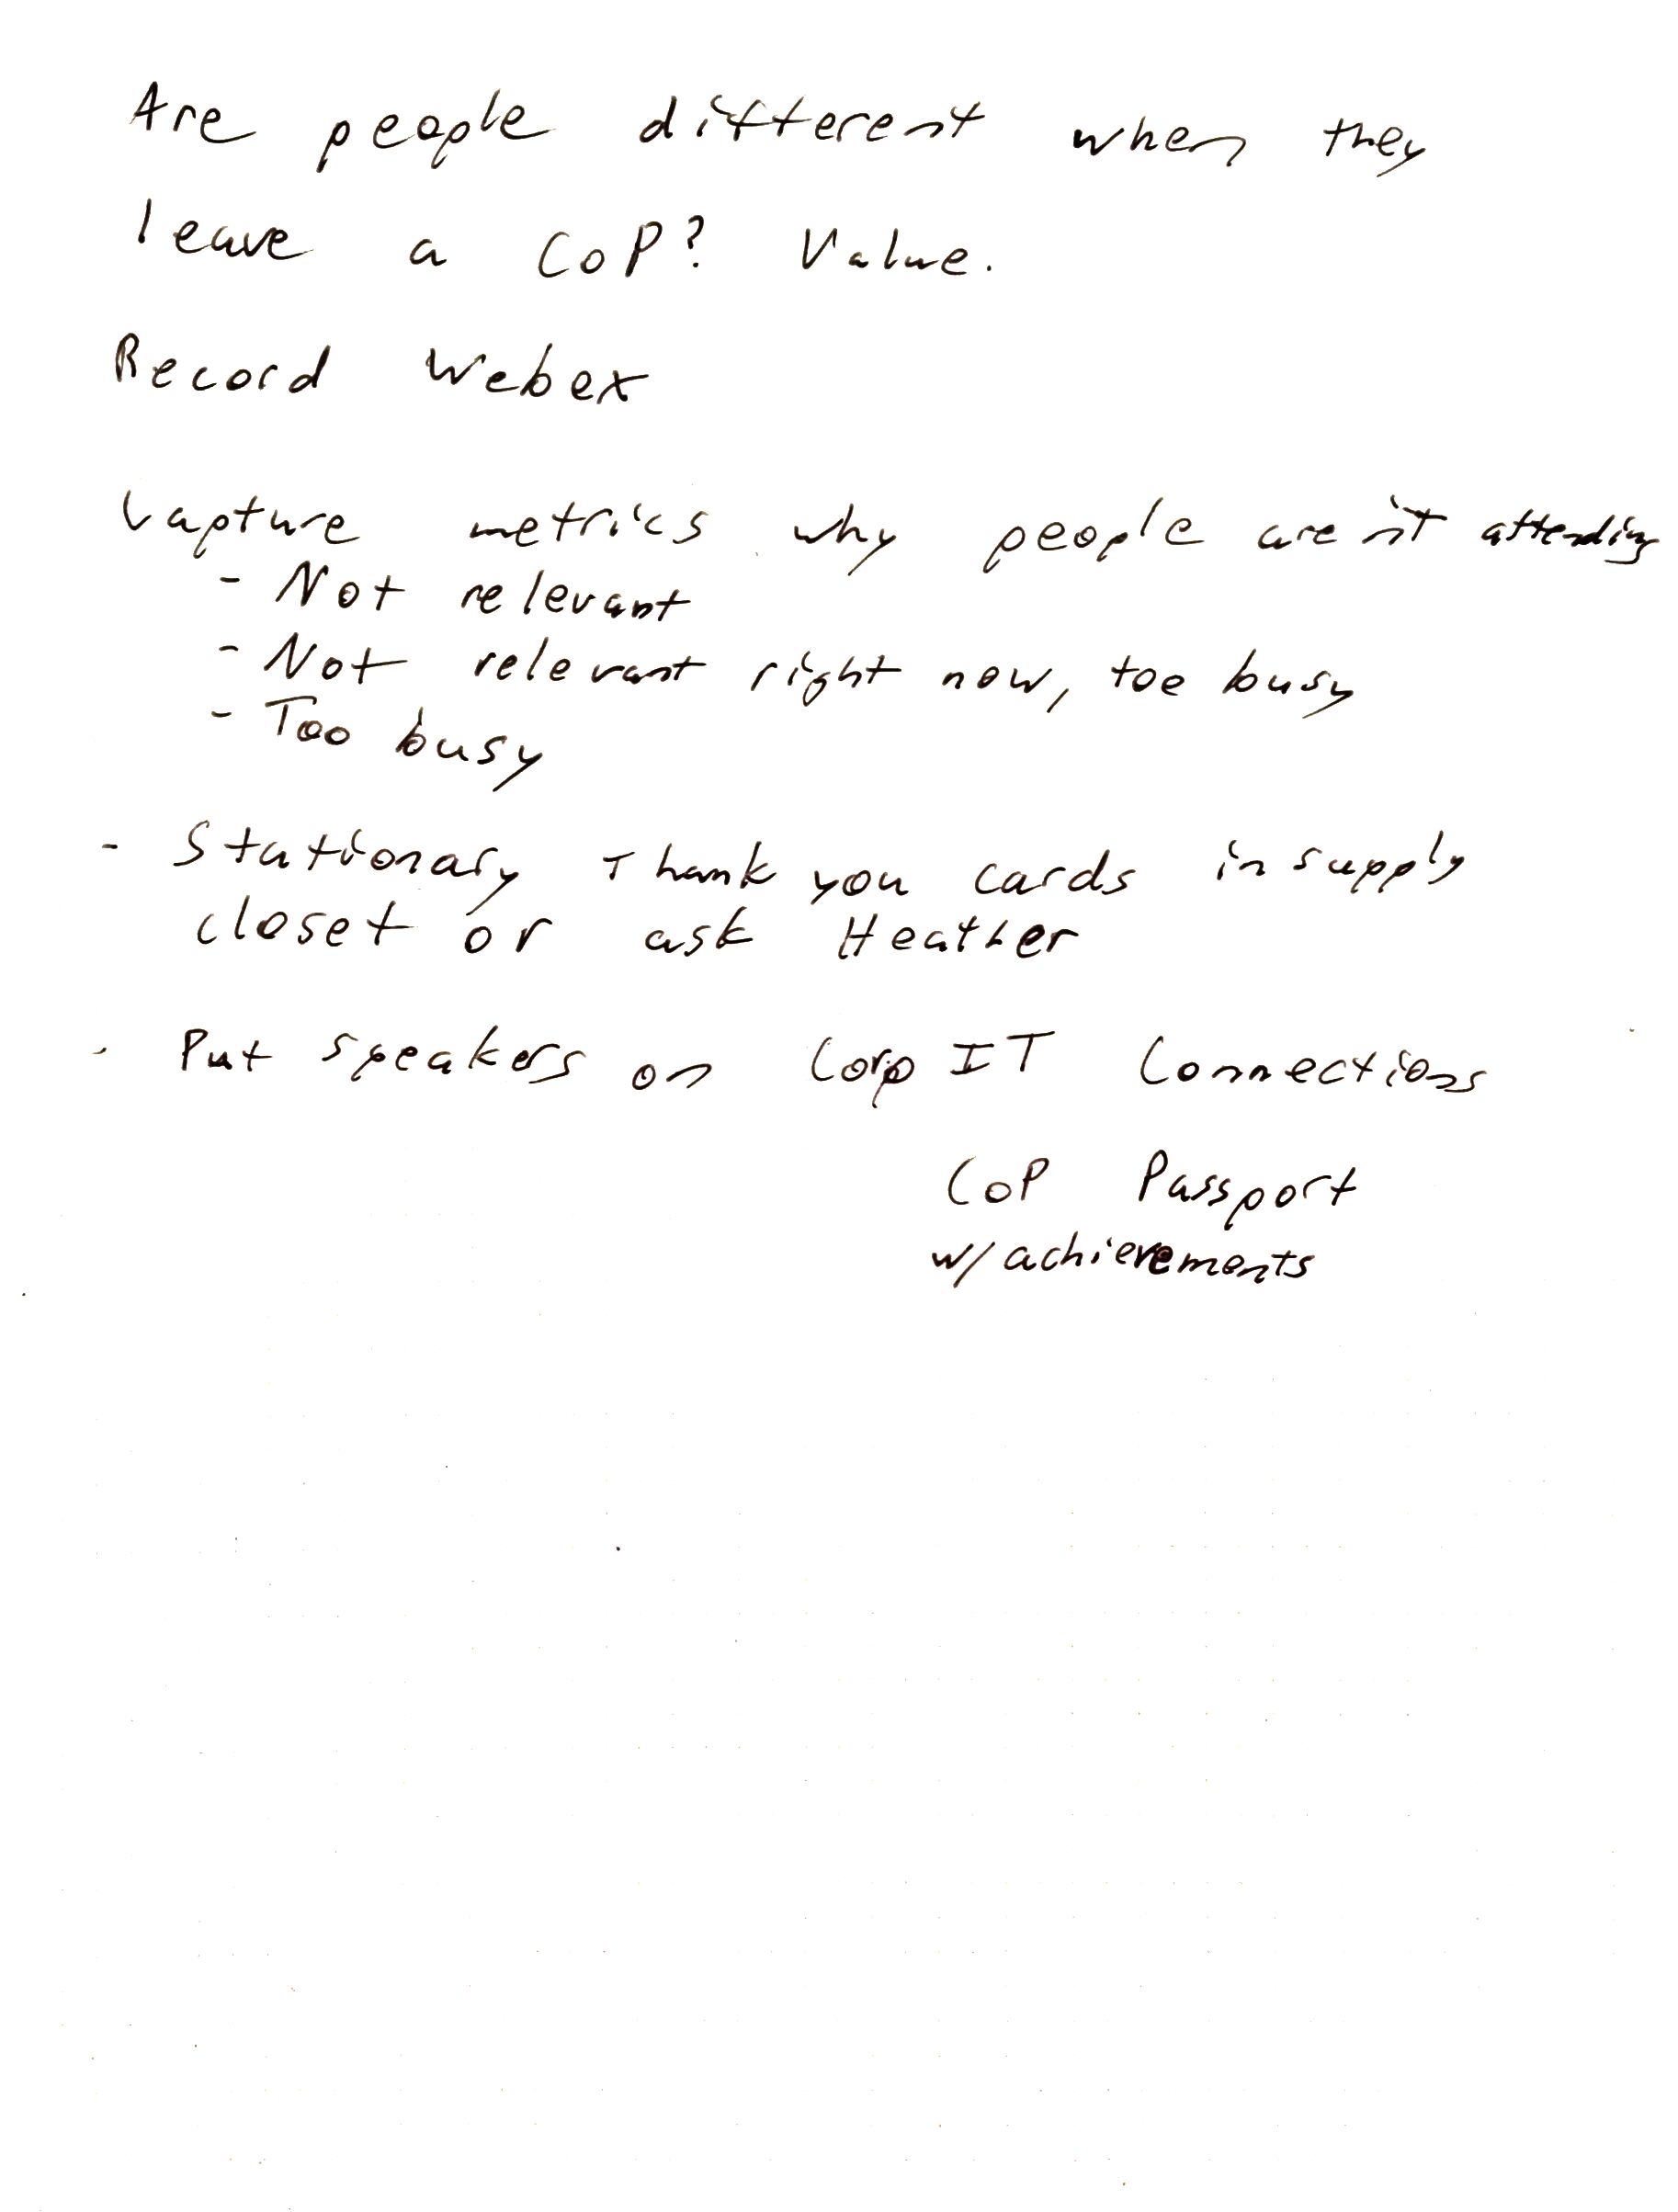 Are people different when they
leave a CoP? Value.
Record Webex
Capture metrics why people aren't attending
- Not relevant
- Not relevant right now, too busy
- Too busy
- Stationary Thank you cards in supply
closet or ask Heather
- Put speakers on Corp IT Connections
CoP Passport
w/ achievements